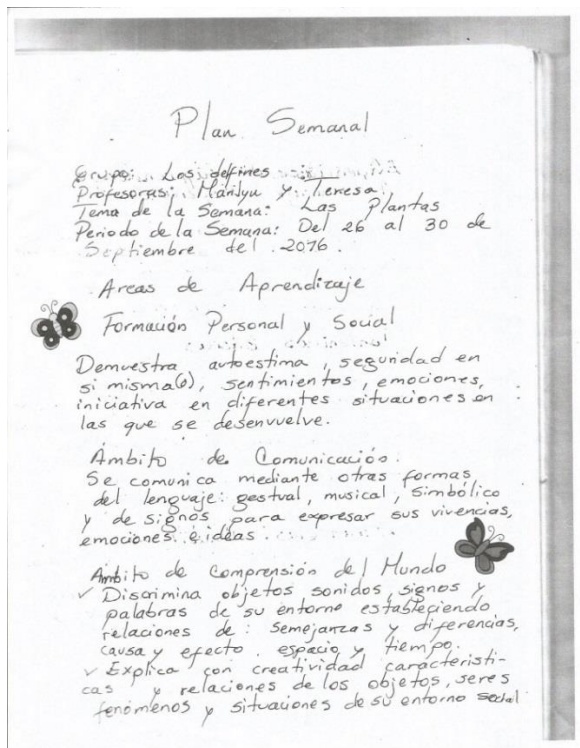 Plan Semanal
Grupo: Los delfines
Profesoras: Marilyu y Teresa
Tema de la Semana: Las Plantas
Periodo de la Semana: Del 26 al 30 de
Septiembre del 2016.
Areas de Aprendizaje
Formación Personal y Social
Demuestra autoestima, seguridad en
si misma(o), sentimientos, emociones,
iniciativa en diferentes situaciones en
las que se desenvuelve.
Ámbito de Comunicación.
Se comunica mediante otras formas
del lenguaje: gestual, musical, simbólico
y de signos para expresar sus vivencias,
emociones é ideas.
Ámbito de Comprensión del Mundo
✓ Discrimina objetos sonidos, signos y
palabras de su entorno estableciendo
relaciones de: semejanzas y diferencias,
causa y efecto, espacio y tiempo.
✓ Explica con creatividad caracteristi-
cas y relaciones de los objetos, seres
fenómenos y situaciones de su entorno social